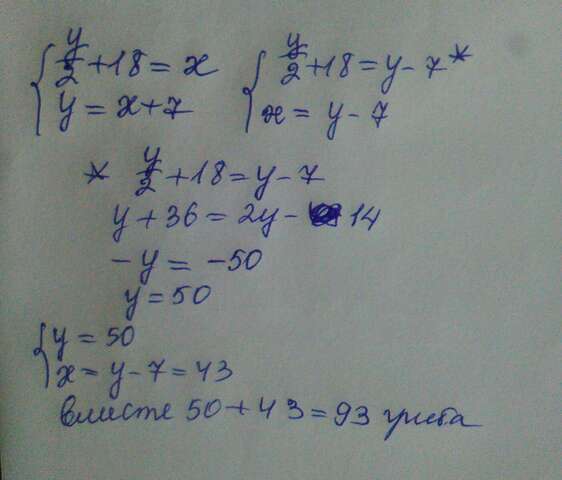 { y/2 + 18 = x { y/2 + 18 = y - 7 *
y = x + 7 x = y - 7
* y/2 + 18 = y - 7
y + 36 = 2y - 14
- y = - 50
y = 50
{ y = 50
x = y - 7 = 43
вместе 50 + 43 = 93 гриба